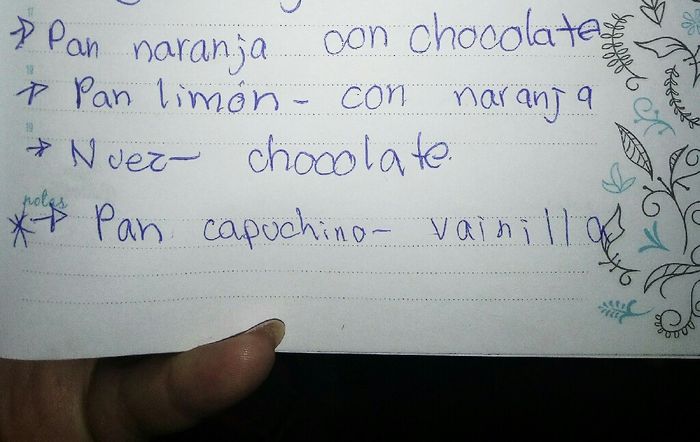 17
→ Pan naranja con chocolate
18
→ Pan limón - con naranja
19
→ Nuez - chocolate.
notas
* → Pan capuchino - vainilla